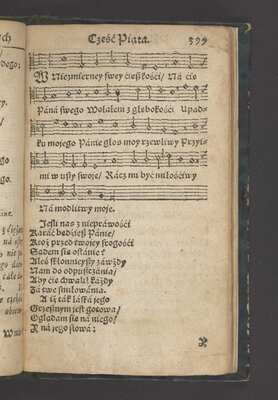 Część Piąta. 399
W Niezmierney swey cięszkości/ Na cię
Páná swego Wołałem z głębokości Upad-
ku mojego Pánie głos moy rzewliwy Przyi-
mi w uszy swoje/ Rácz mi być miłościwy
Ná modlitwy moje.
Jesli nas z nieprawości
Káráć będziesz Pánie/
Ktoż przed twojey srogości
Sądem się ostánie?
Aleś skłonnieyszy záwżdy
Nam do odpuszczánia/
Aby cię chwalił káżdy
Zá twe smiłowánia.
A iż ták łáská jego
Grzesznym jest gotowa/
Oglądam się ná niego/
Y ná jego słowá;